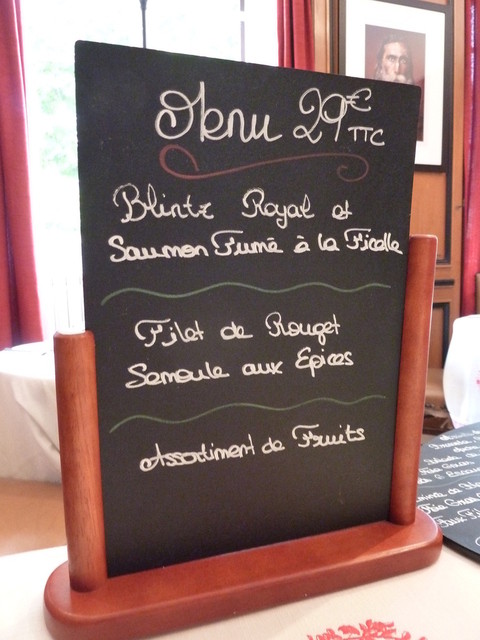 Menu 29€ TTC
Blintz Royal et
Saumon Fumé à la Ficelle
Filet de Rouget
Semoule aux Epices
Assortiment de Fruits